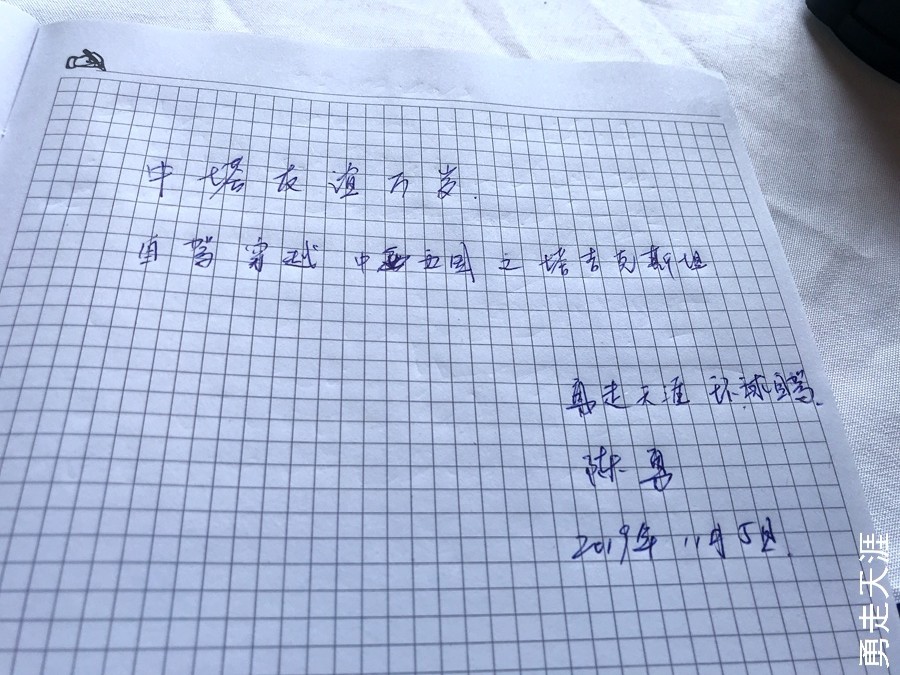 中塔友谊万岁.
自驾穿越 中亚五国之塔吉克斯坦
勇走天涯 环球自驾.
陈勇
2019年 11月5日.
勇走天涯